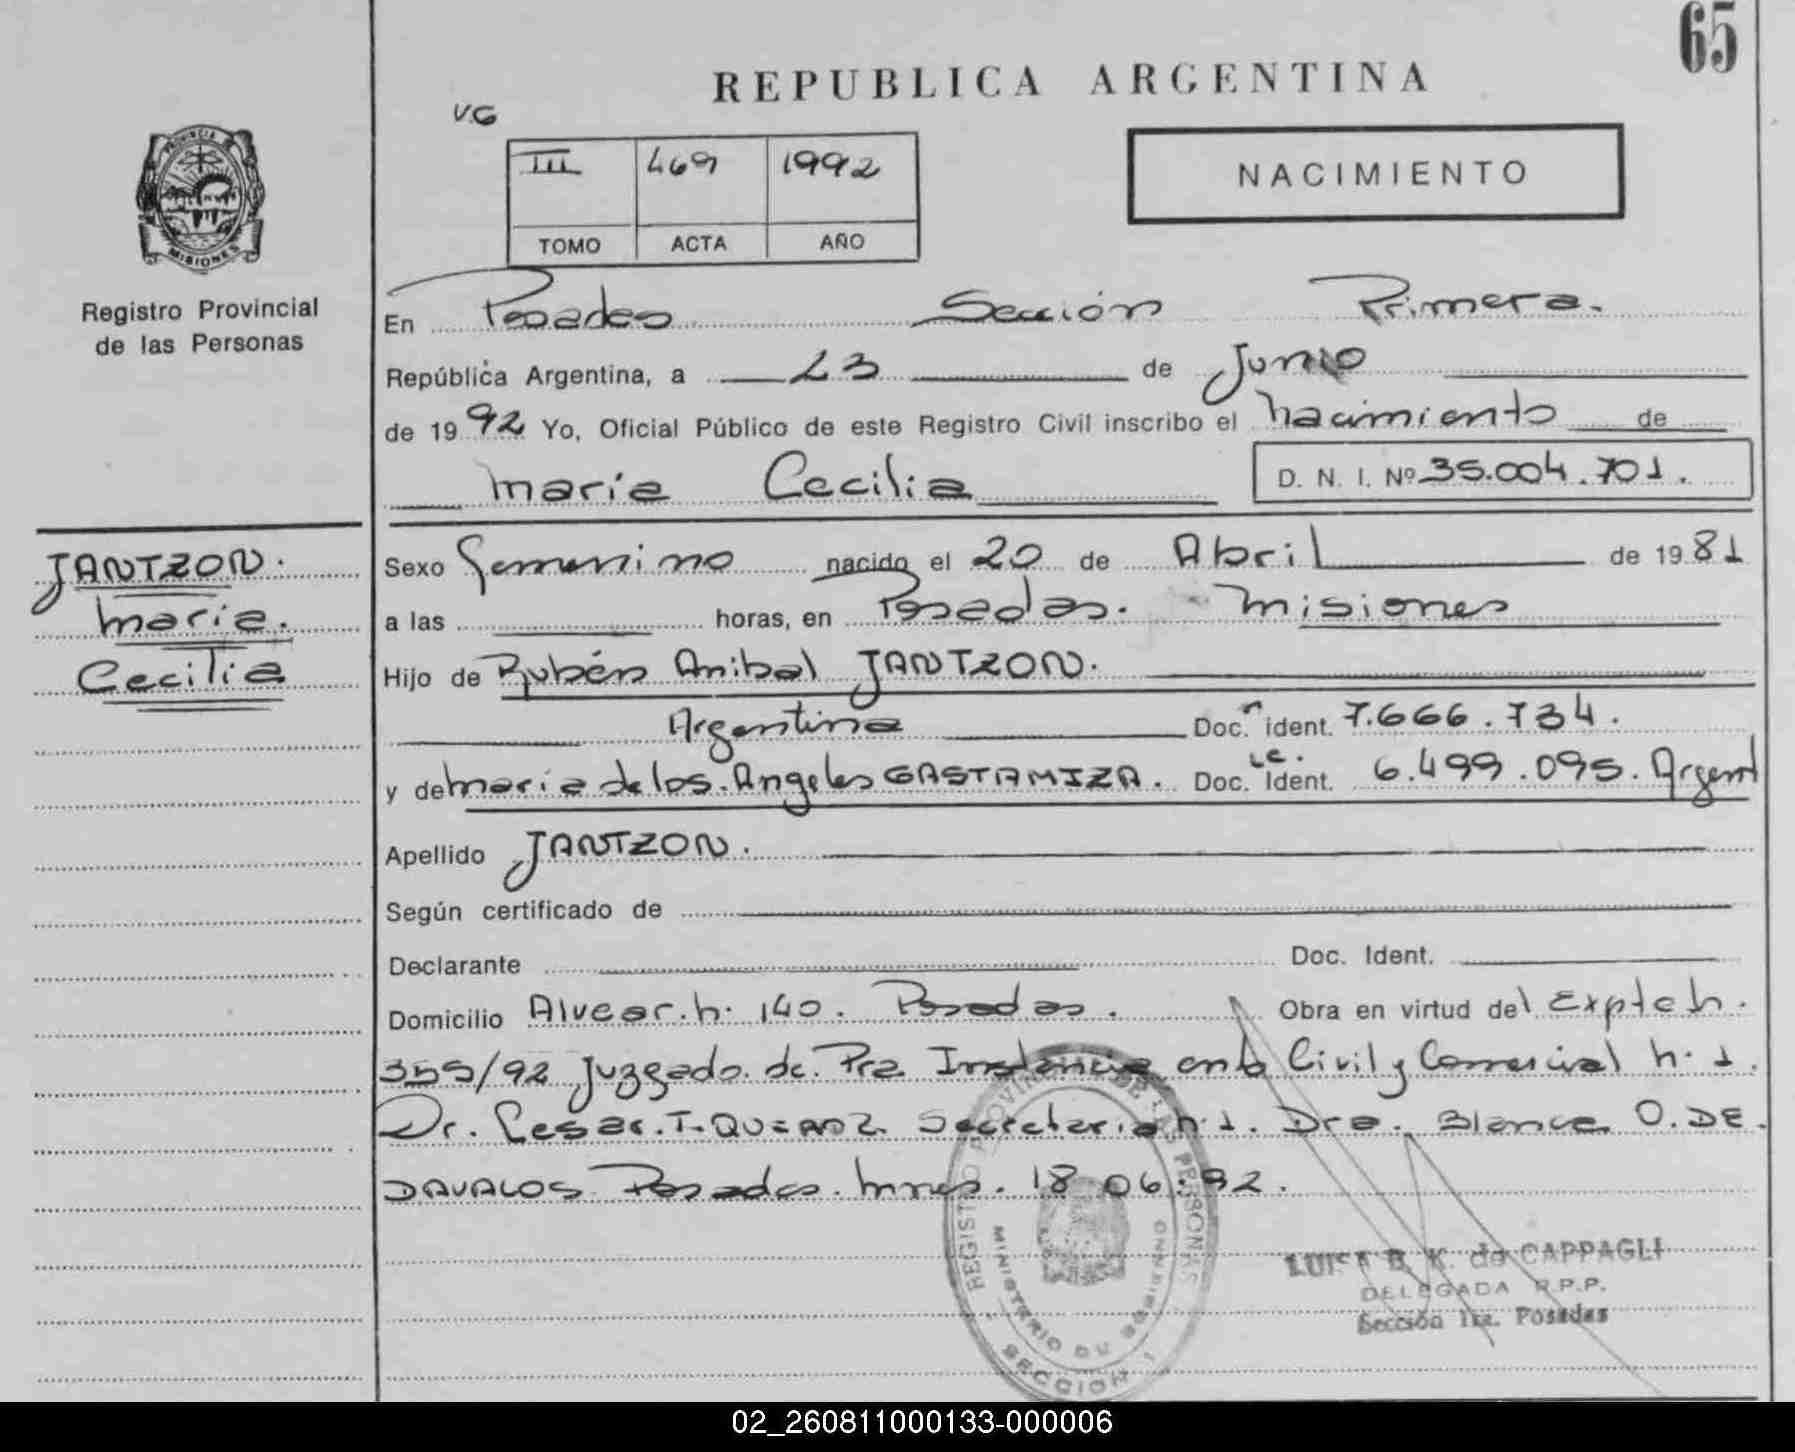 65
REPUBLICA ARGENTINA
V.G
III 469 1992
TOMO ACTA AÑO
NACIMIENTO
PROVINCIA DE
MISIONES
Registro Provincial
de las Personas
En Posadas Sección Primera.
República Argentina, a 23 de Junio
de 1992 Yo, Oficial Público de este Registro Civil inscribo el nacimiento de
Maria Cecilia D. N. I. Nº 35.004.701.
JANTZON.
Maria.
Cecilia
Sexo Femenino nacido el 20 de Abril de 1981
a las horas, en Posadas. Misiones
Hijo de Rubén Anibal JANTZON.
Argentina Doc. ident. 7.666.734.
y de Maria de los Angeles GASTAMIZA. Doc. Ident. L.C. 6.499.095. Argent
Apellido JANTZON.
Según certificado de
Declarante Doc. Ident.
Domicilio Alvear. n. 140. Posadas. Obra en virtud del Expte n.
355/92 Juzgado de Pra Instancia en lo Civil y Comercial n. 1.
Dr. Cesar. T. Secretaria n. 1. Dra. Blanca O. DE
DAVALOS Posadas. Mnes. 18 06.92.
REGISTRO PROVINCIAL DE LAS PERSONAS
MINISTERIO DE GOBIERNO
SECCION 1
LUISA B. K. de CAPPAGLI
DELEGADA R.P.P.
Sección 1ra. Posadas
02_260811000133-000006